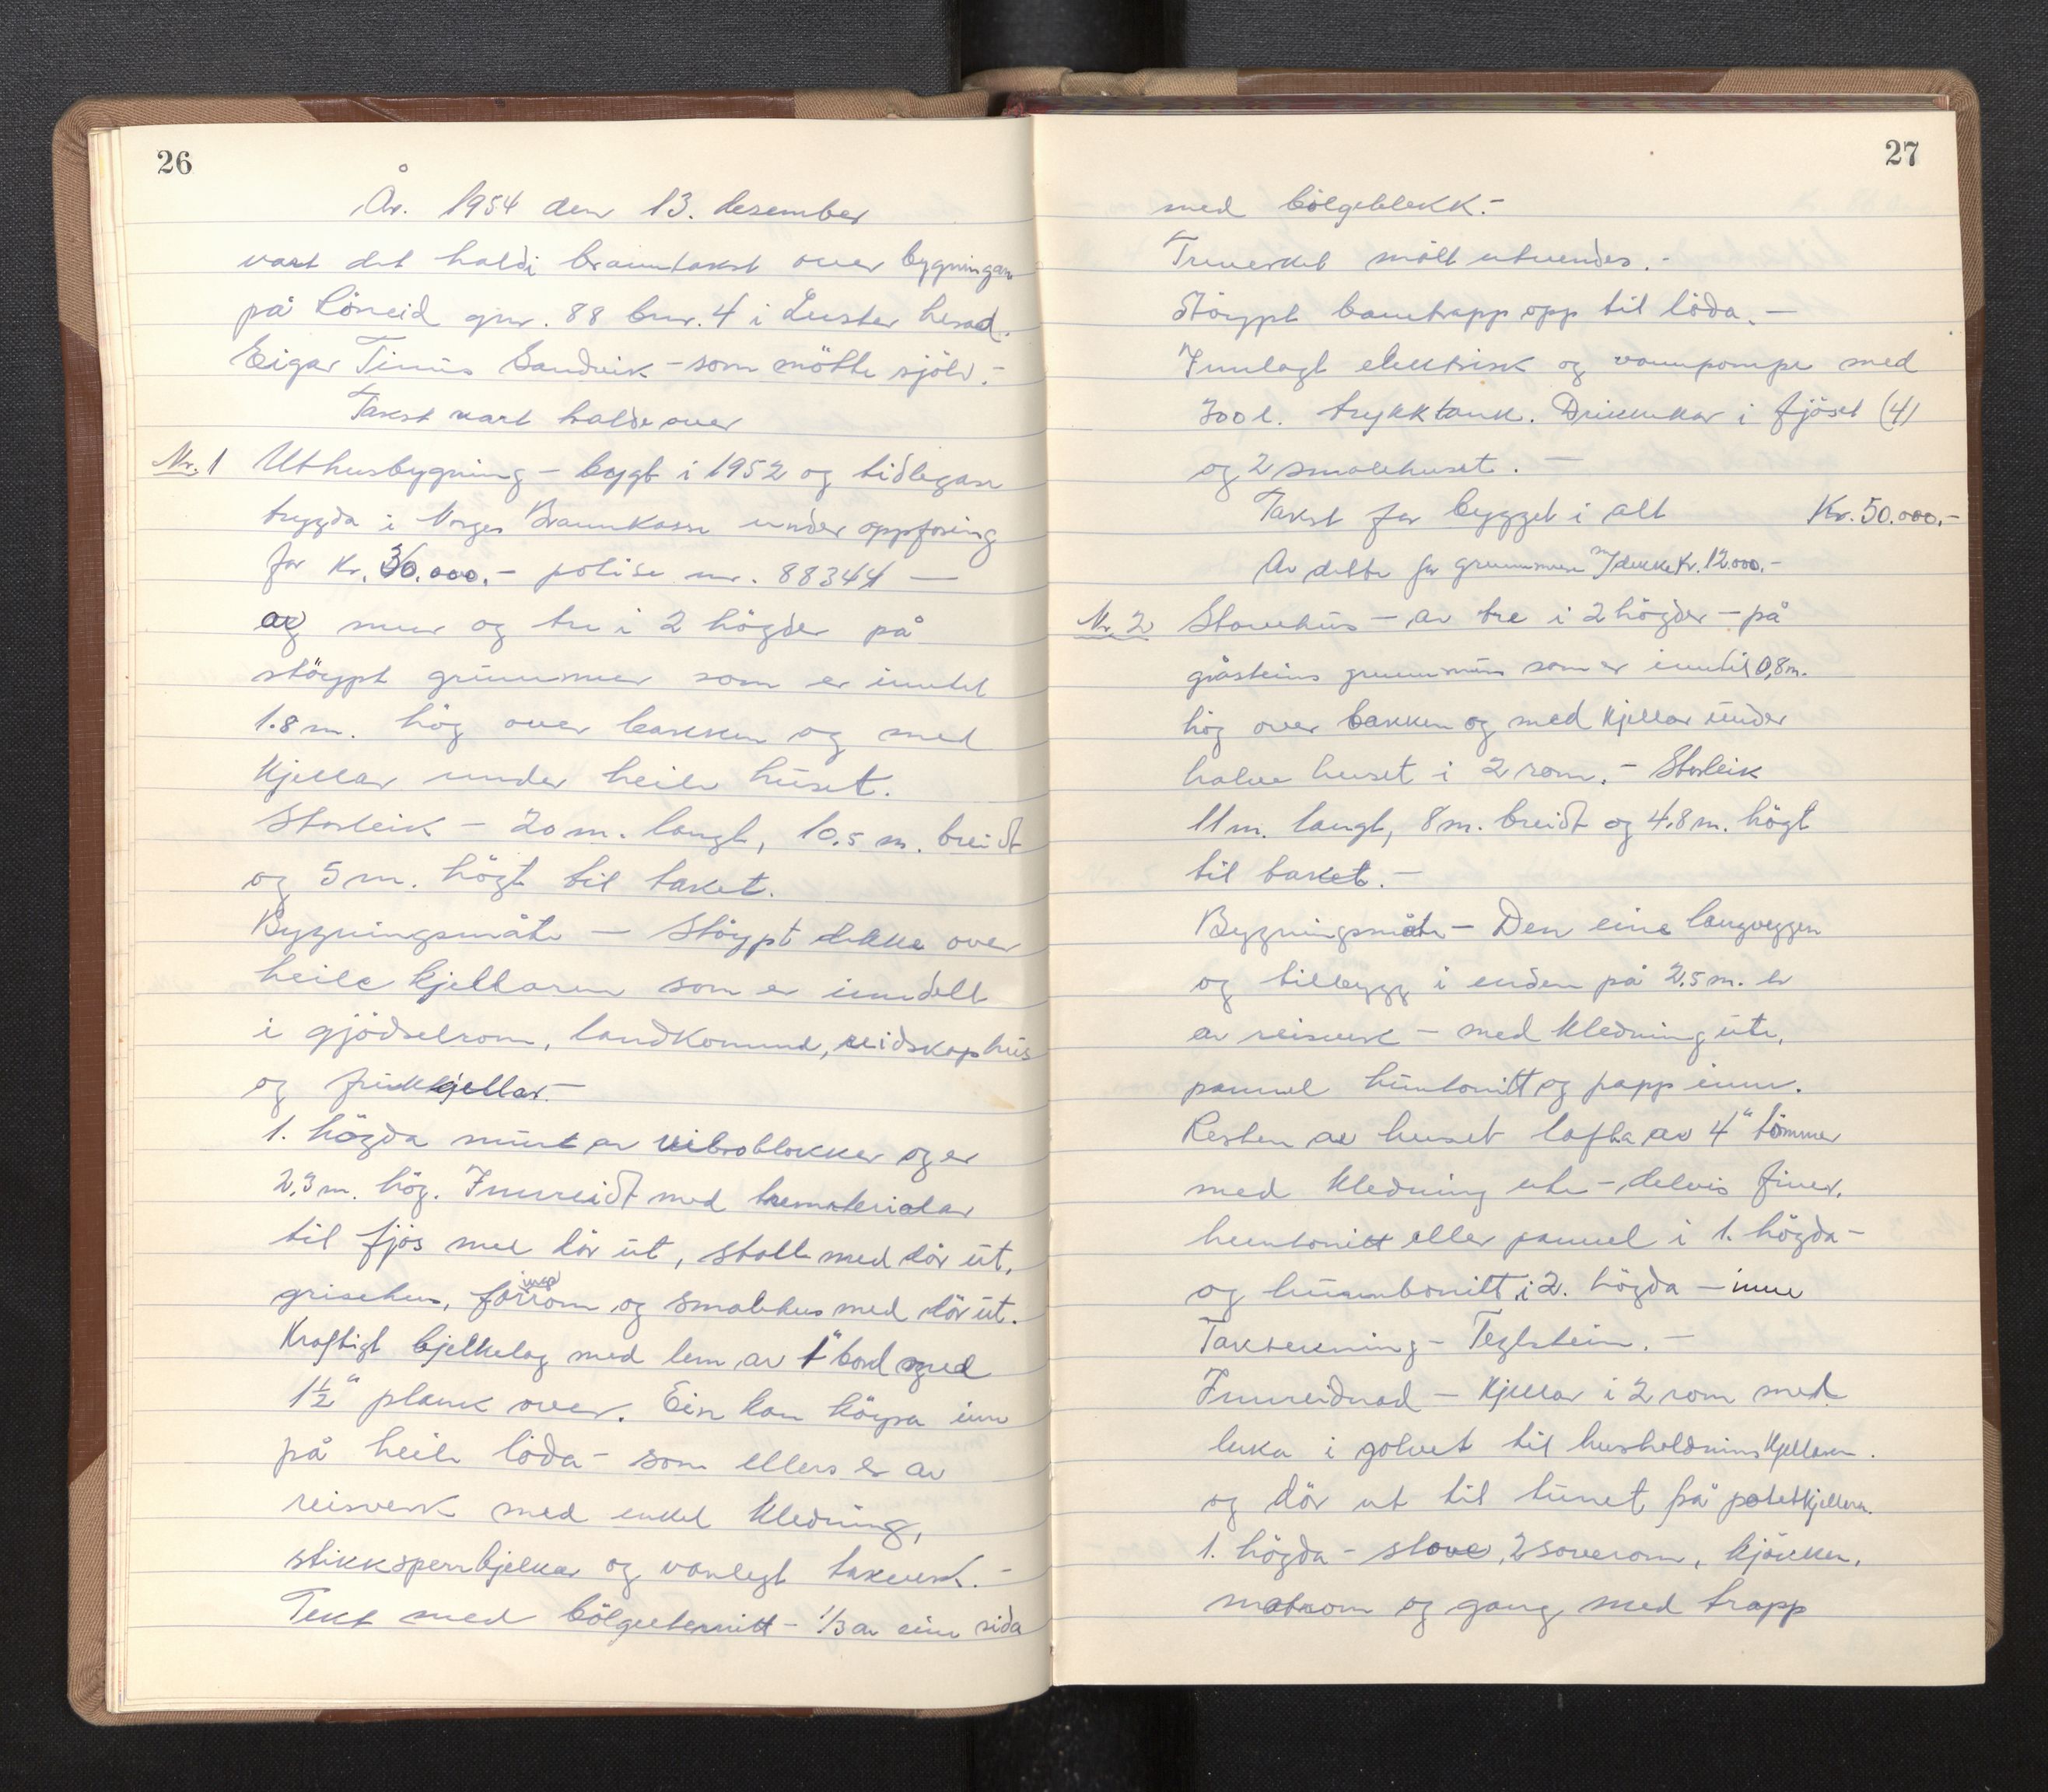 26
År. 1954 den 13. desember
vart det haldi branntakst over bygningane
på Löneid gnr. 88 bnr. 4 i Luster herad.
Eigar Tinus Sandvik - som mötte sjölv. -
Takst vart halde over
Nr. 1 Uthusbygning - bygt i 1952 og tidlegare
trygda i Norges Brannkasse under oppföring
for Kr. 30.000.- polise nr. 88344 —
av mur og tre i 2 högder på
stöypt grunnmur som er inntil
1.8 m. hög over bakken og med
kjellar under heile huset.
Storleik - 20 m. langt, 10,5 m. breidt
og 5 m. högt til taket.
Bygningsmåte - Stöypt dekke over
heile kjellaren som er inndelt
i gjödselrom, landkummd, reidskaphus
og frukkjellar. -
1. högda murt av vibroblokker og er
2,3 m. hög. Innreidt med trematerialar
til fjös med dör ut, stall med dör ut,
grisehus, forrom og smalehus med dör ut.
Kraftigt bjelkelag med lem av 1" bord med
1½" plank over. Ein kan köyra inn
på heile löda - som ellers er av
reisverk med enkel kledning,
stikksperrbjelkar og vanlegt takverk. -
Tekt med bölgeeternitt - 1/3 av eine sida
27
med bölgeblekk. -
Treverket målt utvendes. -
Stöypt banetrapp opp til löda. -
Innlagt elektrisk og vannpompe med
300 l. trykktank. Drikkekar i fjöset (4)
og 2 smalehuset. -
Takst for bygget i alt Kr. 50.000.-
Av dette for grunnmur m/dekke Kr. 12.000.-
Nr. 2 Stovehus - av tre i 2 högder - på
gråsteins grunnmur som er inntil 0,8 m.
hög over bakken og med kjellar under
halve huset i 2 rom. - Storleik
11 m. langt, 8 m. breidt og 4,8 m. högt
til taket. -
Bygningsmåte - Den eine langveggen
og tilbygg i enden på 2,5 m. er
av reisverk - med kledning ute,
pannel huntonitt og papp inn.
Resten av huset lafta av 4" tömmer
med kledning ute - delvis finer,
huntonitt eller pannel i 1. högda -
og huntonitt i 2. högda - inne
Taktekning - Teglstein. -
Innreidnad - Kjellar i 2 rom med
luka i golvet til husholdninskjellaren.
og dör ut til tunet frå potetkjellern.
1. högda - stove, 2 soverom, kjöken,
matrom og gang med trapp